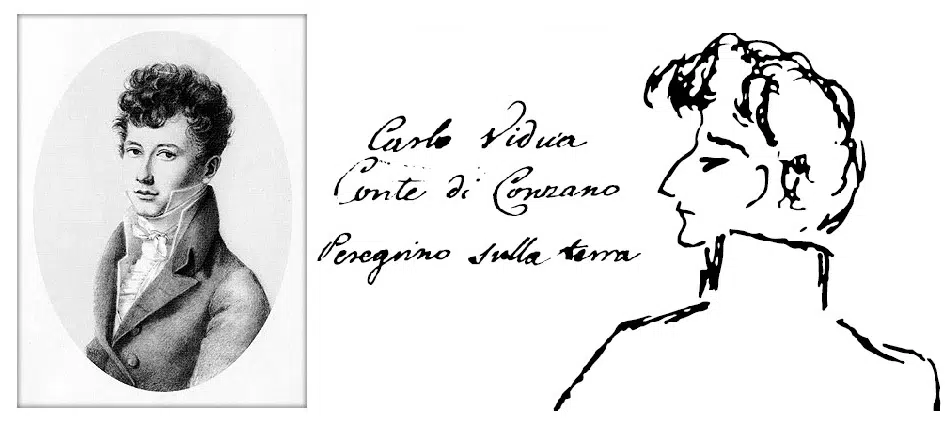 Carlo Vidua
Conte di Conzano
Peregrino sulla terra